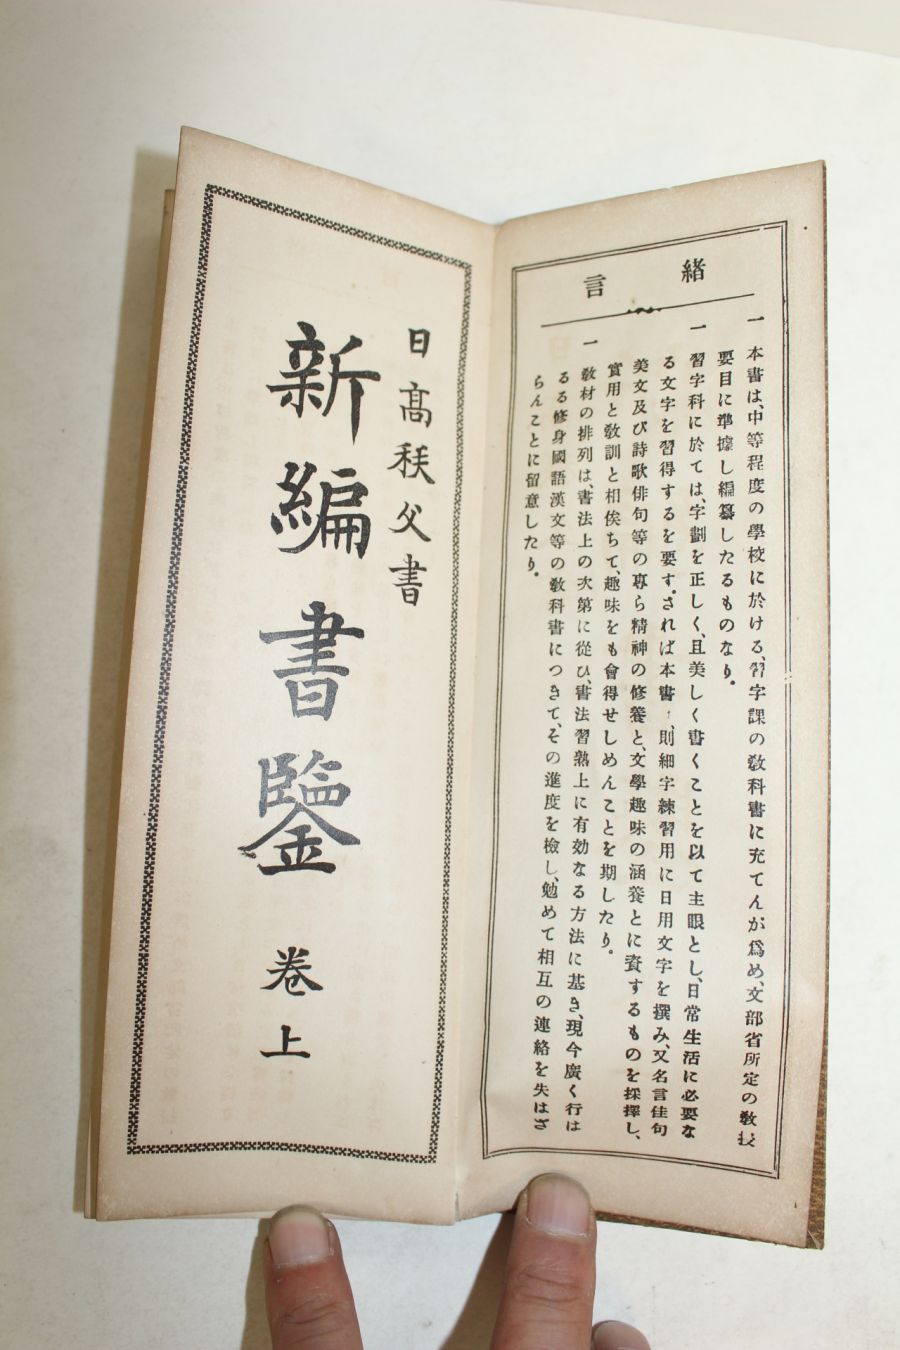 緖言
一本書は、中等程度の學校に於ける、習字課の敎科書に充てんが爲め、文部省所定の敎授
要目に準據し編纂したるものなり。
一習字科に於ては、字劃を正しく、且美しく書くことを以て主眼とし、日常生活に必要な
る文字を習得するを要す。されば本書は則細字練習用に日用文字を撰み、又名言佳句
美文及び詩歌俳句等の專ら精神の修養と、文學趣味の涵養とに資するものを採擇し、
實用と敎訓と相俟ちて、趣味をも會得せしめんことを期したり。
一敎材の排列は、書法上の次第に從ひ、書法習熟上に有効なる方法に基き、現今廣く行は
るる修身國語漢文等の敎科書につきて、その進度を檢し、勉めて相互の連絡を失はざ
らんことに留意したり。
日高秩父書
新編書鑒 卷上